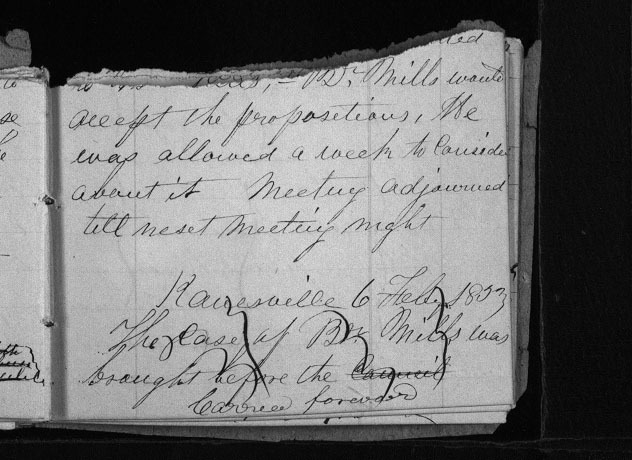 Br Mills wants
accept the propositions, He
was allowed a week to Consider
about it Meeting adjourned
till next Meeting night
Kanesville 6 Feb. 1853
The Case of Br Mills was
brought before the Council
Carried forward